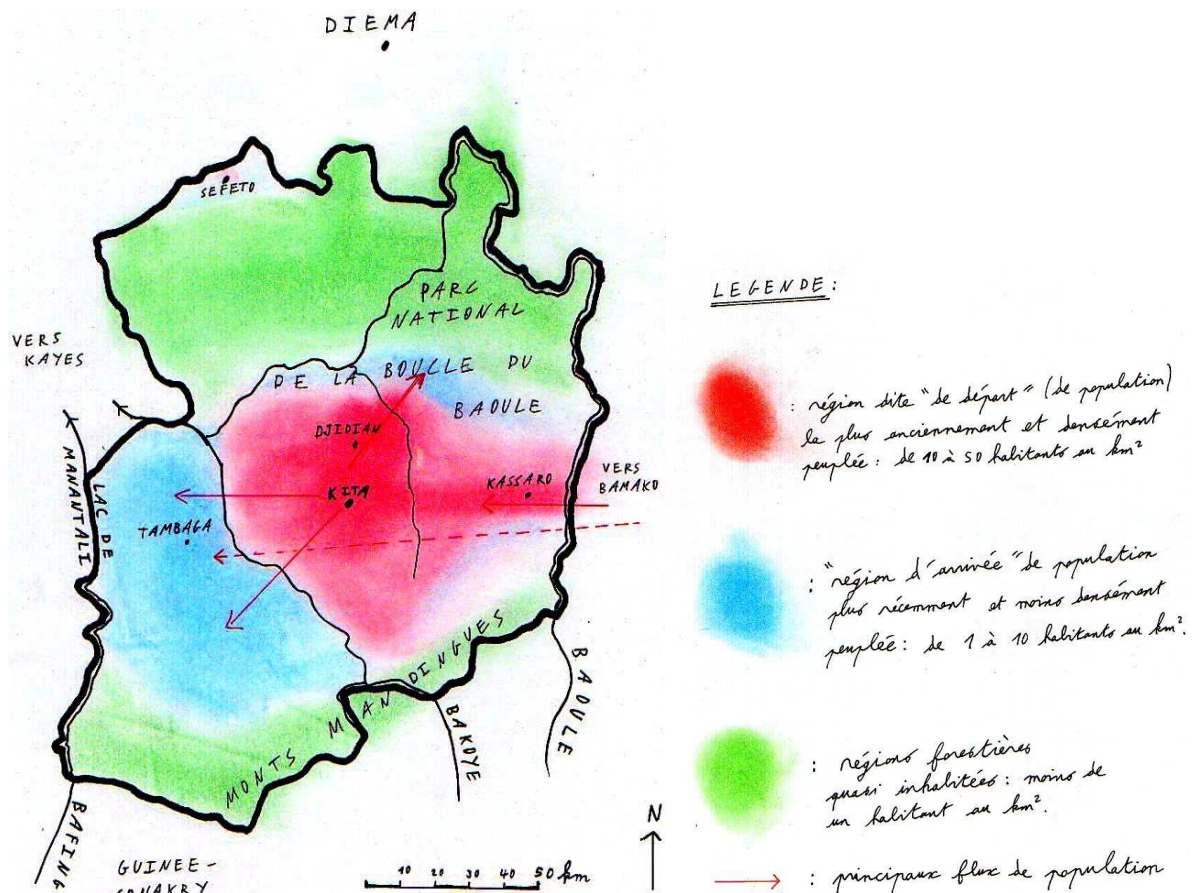 DIEMA
SEFETO
PARC
NATIONAL
VERS
KAYES
DE LA BOUCLE DU
BAOULE
DJIDIAN
KITA
KASSARO
VERS
BAMAKO
LAC DE
MANANTALI
TAMBAGA
MONTS MANDINGUES
BAOULE
BAKOYE
BAFING
GUINEE-
CONAKRY
10 20 30 40 50 km
N
LEGENDE :
: région dite "de départ" (de population)
la plus anciennement et densément
peuplée : de 10 à 50 habitants au km²
: "région d'arrivée" de population
plus récemment et moins densément
peuplée : de 1 à 10 habitants au km².
: régions forestières
quasi inhabitées : moins de
un habitant au km².
: principaux flux de population